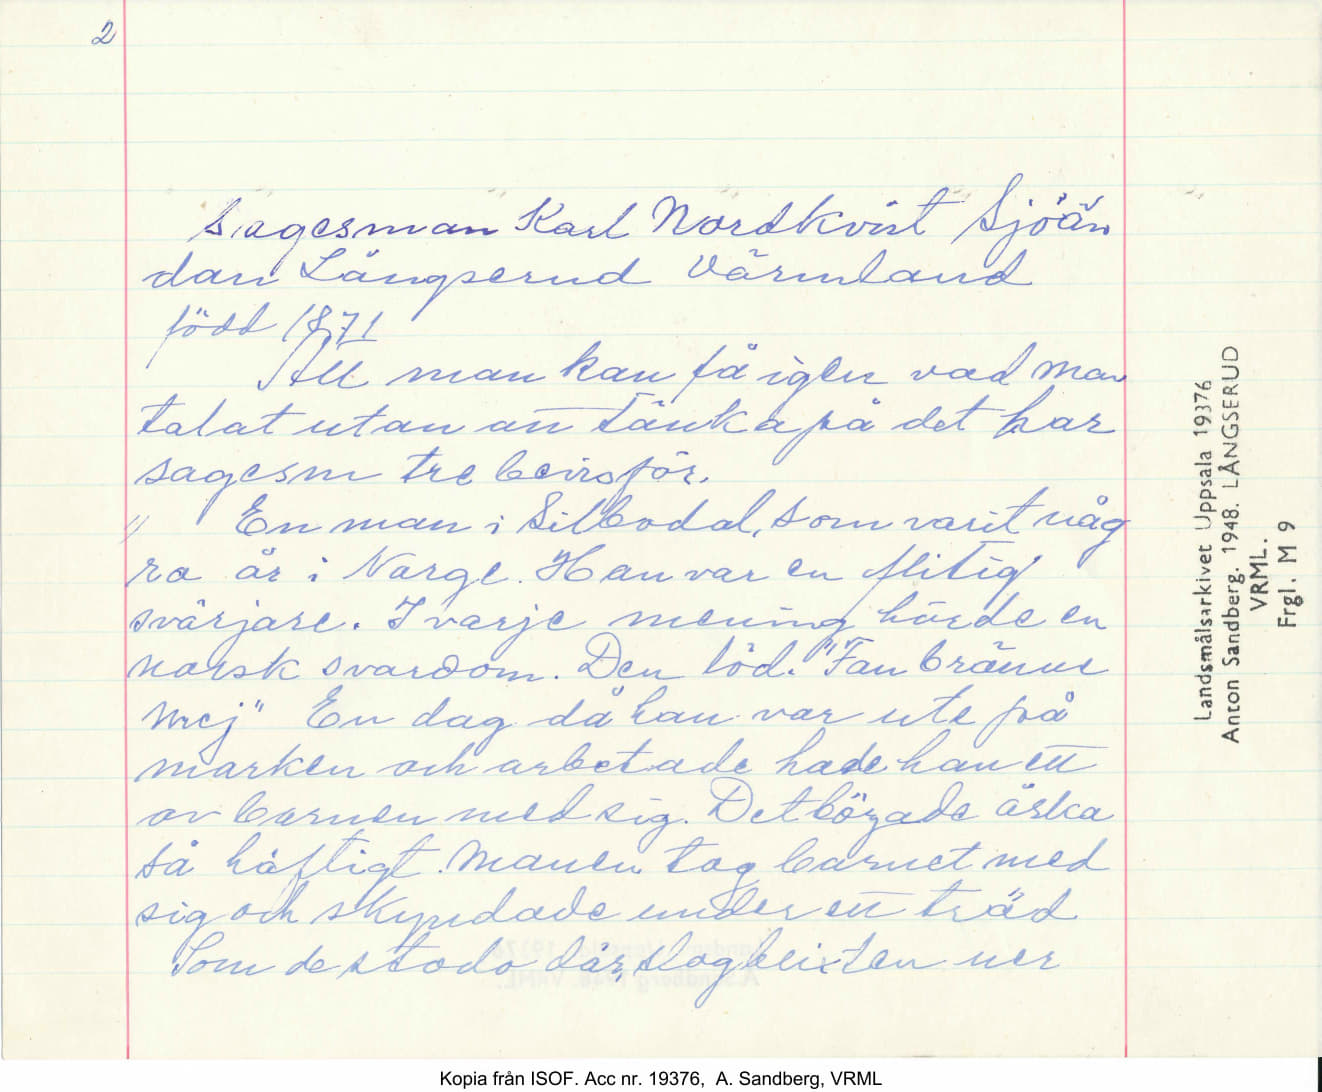 2
Sagesman Karl Nordkvist Sjöän
dan Långserud Värmland
född 1871
Att man kan få igen vad man
talat utan att tänka på det har
sagesm tre bevis för.
1) En man i Silbodal, som varit någ
ra år i Norge. Han var en flitig
svärjare. I varje mening hörde en
norsk svardom. Den löd. "Fan bränne
mej" En dag då han var ute på
marken och arbetade hade han ett
av barnen med sig. Det började åska
så häftigt. Manen tog barnet med
sig och skyndade under ett träd
Som de stodo där, slog blixten ner
Landsmålsarkivet Uppsala 19376
Anton Sandberg. 1948. LÅNGSERUD
VRML.
Frgl. M 9
Kopia från ISOF. Acc nr. 19376, A. Sandberg, VRML